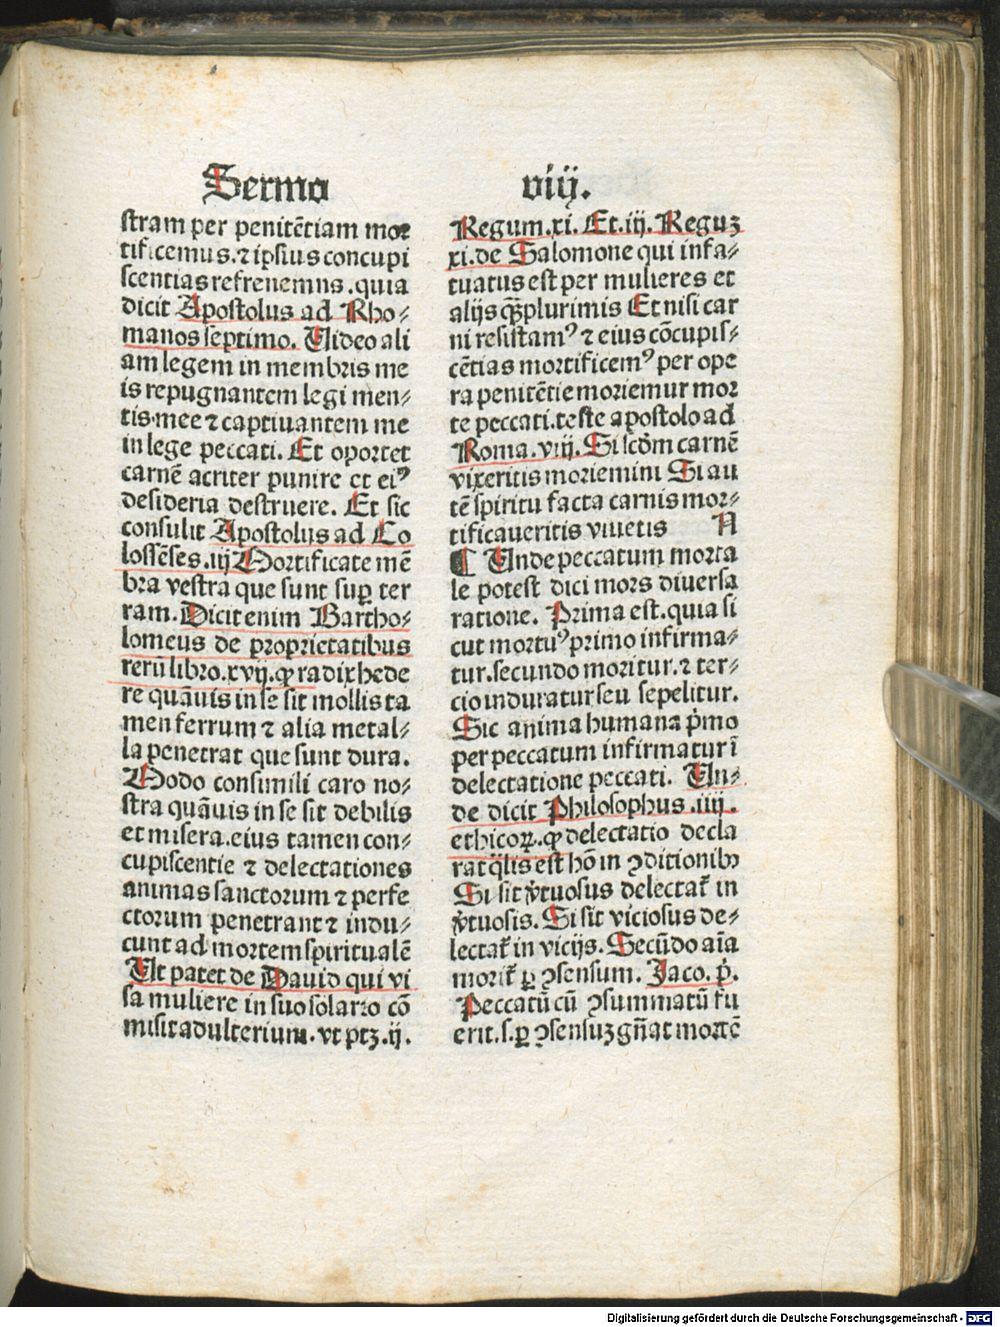 Sermo
viij.
stram per penitētiam mor
tificemus.⁊ ipsius concupi
scentias refrenemns.quia
dicit Apostolus ad Rho⸗
manos septimo. Video ali
am legem in membris me
is repugnantem legi men⸗
tis mee ⁊ captiuantem me
in lege peccati. Et oportet
carnē acriter punire et eiꝰ
desideria destruere. Et sic
consulit Apostolus ad Co
lossēses.iij Mortificate mē
bra vestra que sunt suꝑ ter
ram. Dicit enim Bartho⸗
lomeus de proprietatibus
rerū libro.xvij.ꝙ radix hede
re quāuis in se sit mollis ta
men ferrum ⁊ alia metal⸗
la penetrat que sunt dura.
Modo consimili caro no⸗
stra quāuis in se sit debilis
et misera.eius tamen con⸗
cupiscentie ⁊ delectationes
animas sanctorum ⁊ perfe
ctorum penetrant ⁊ indu⸗
cunt ad mortem spiritualē
Ut patet de Dauid qui vi
sa muliere in suo solario cō
misit adulterium.vt ptꝫ.ij.
Regum.xi. Et.iij. Reguꝫ
xi.de Salomone qui infa⸗
tuatus est per mulieres et
alijs qͣ̄plurimis Et nisi car
ni resistamꝰ ⁊ eius cōcupis⸗
cētias mortificemꝰ per ope
ra penitētie moriemur mor
te peccati.teste apostolo ad
Roma.viij. Si scḋm carnē
vixeritis moriemini Si au
tē spiritu facta carnis mor⸗
tificaueritis viuetis A
¶ Unde peccatum morta
le potest dici mors diuersa
ratione. Prima est.quia si
cut mortuꝰ primo infirma⸗
tur.secundo moritur.⁊ ter⸗
cio induratur seu sepelitur.
Sic anima humana pͥmo
per peccatum infirmatur ī
delectatione peccati. Un⸗
de dicit Philosophus.iiij.
ethicoꝝ.ꝙ delectatio decla
rat qͣlis est hō in ꝯditionibꝫ
Si sit v̓tuosus delectat̄ in
v̓tuosis. Si sit viciosus de⸗
lectat̄ in vicijs. Secūdo aīa
morit̄ ꝑ ꝯsensum. Jaco. pͥ.
Peccatū cū ꝯsummatū fu
erit.s.ꝑ ꝯsensuꝫ gn̄at mortē
Digitalisierung gefördert durch die Deutsche Forschungsgemeinschaft - DFG